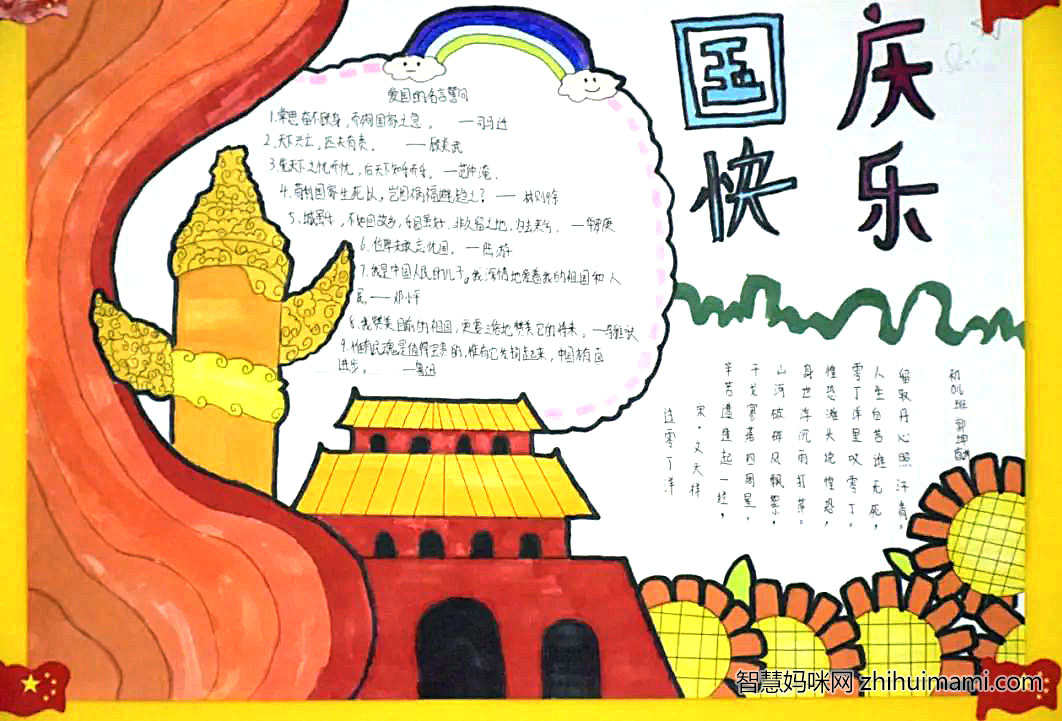 国庆
快乐
爱国的名言警句
1.常思奋不顾身,而殉国家之急。 —司马迁
2.天下兴亡,匹夫有责。 —顾炎武
3.先天下之忧而忧,后天下之乐而乐。—范仲淹。
4.苟利国家生死以,岂因祸福避趋之?— 林则徐
5.不如回故乡,乐园虽好,非久留之地,归去来兮。—华罗庚
6.位卑未敢忘忧国。—陆游
7.我是中国人民的儿子。我深情地爱着我的祖国和人
民。——邓小平
8.我赞美目前的祖国,更要三倍地赞美它的将来。
9.惟有民魂是值得宝贵的,惟有它发扬起来,中国才有真
进步。 ——鲁迅
过零丁洋
宋·文天祥
辛苦遭逢起一经,
干戈寥落四周星。
山河破碎风飘絮,
身世浮沉雨打萍。
惶恐滩头说惶恐,
零丁洋里叹零丁。
人生自古谁无死,
留取丹心照汗青。
智慧妈咪网 zhihuimami.com